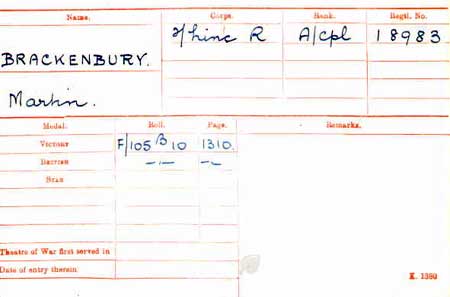 Name. Corps. Rank. Regtl. No.
BRACKENBURY. 2/Linc R A/Cpl 18983
Martin.
Medal. Roll. Page. Remarks.
VICTORY F/105 B 10 1310.
BRITISH -,,- -,,-
STAR
Theatre of War first served in
Date of entry therein K. 1380